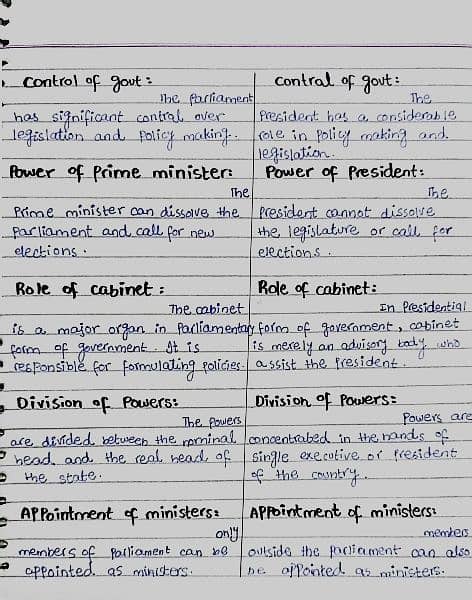 Control of govt:
The Parliament
has significant control over
legislation and policy making.
Power of Prime minister:
The
Prime minister can dissolve the
Parliament and call for new
elections.
Role of cabinet:
The cabinet
is a major organ in Parliamentary
form of government. It is
responsible for formulating policies.
Division of Powers:
The Powers
are divided between the nominal
head and the real head of
the state.
Appointment of ministers:
only
members of Parliament can be
appointed as ministers.
Control of govt:
The
President has a considerable
role in policy making and
legislation.
Power of President:
The
President cannot dissolve
the legislature or call for
elections.
Role of cabinet:
In Presidential
form of government, cabinet
is merely an advisory body who
assist the president.
Division of Powers:
Powers are
concentrated in the hands of
single executive or President
of the country.
Appointment of ministers:
members
outside the parliament can also
be appointed as ministers.